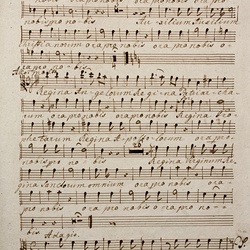 nobis ora pro nobis Auxilium Auxilium
Christianorum ora pro nobis ora pro nobis o-
ra pro nobis.
Regina Angelorum Regina Patriar-cha-
rum ora pro nobis ora pro nobis Regina Pro-
phetarum Regina Apostolorum ora pro
nobis pro nobis 20 Regina Virginum Re-
gina Sanctorum omnium ora pro nobis ora
pro nobis ora pro nobis ora pro no-
bis. Adagio.